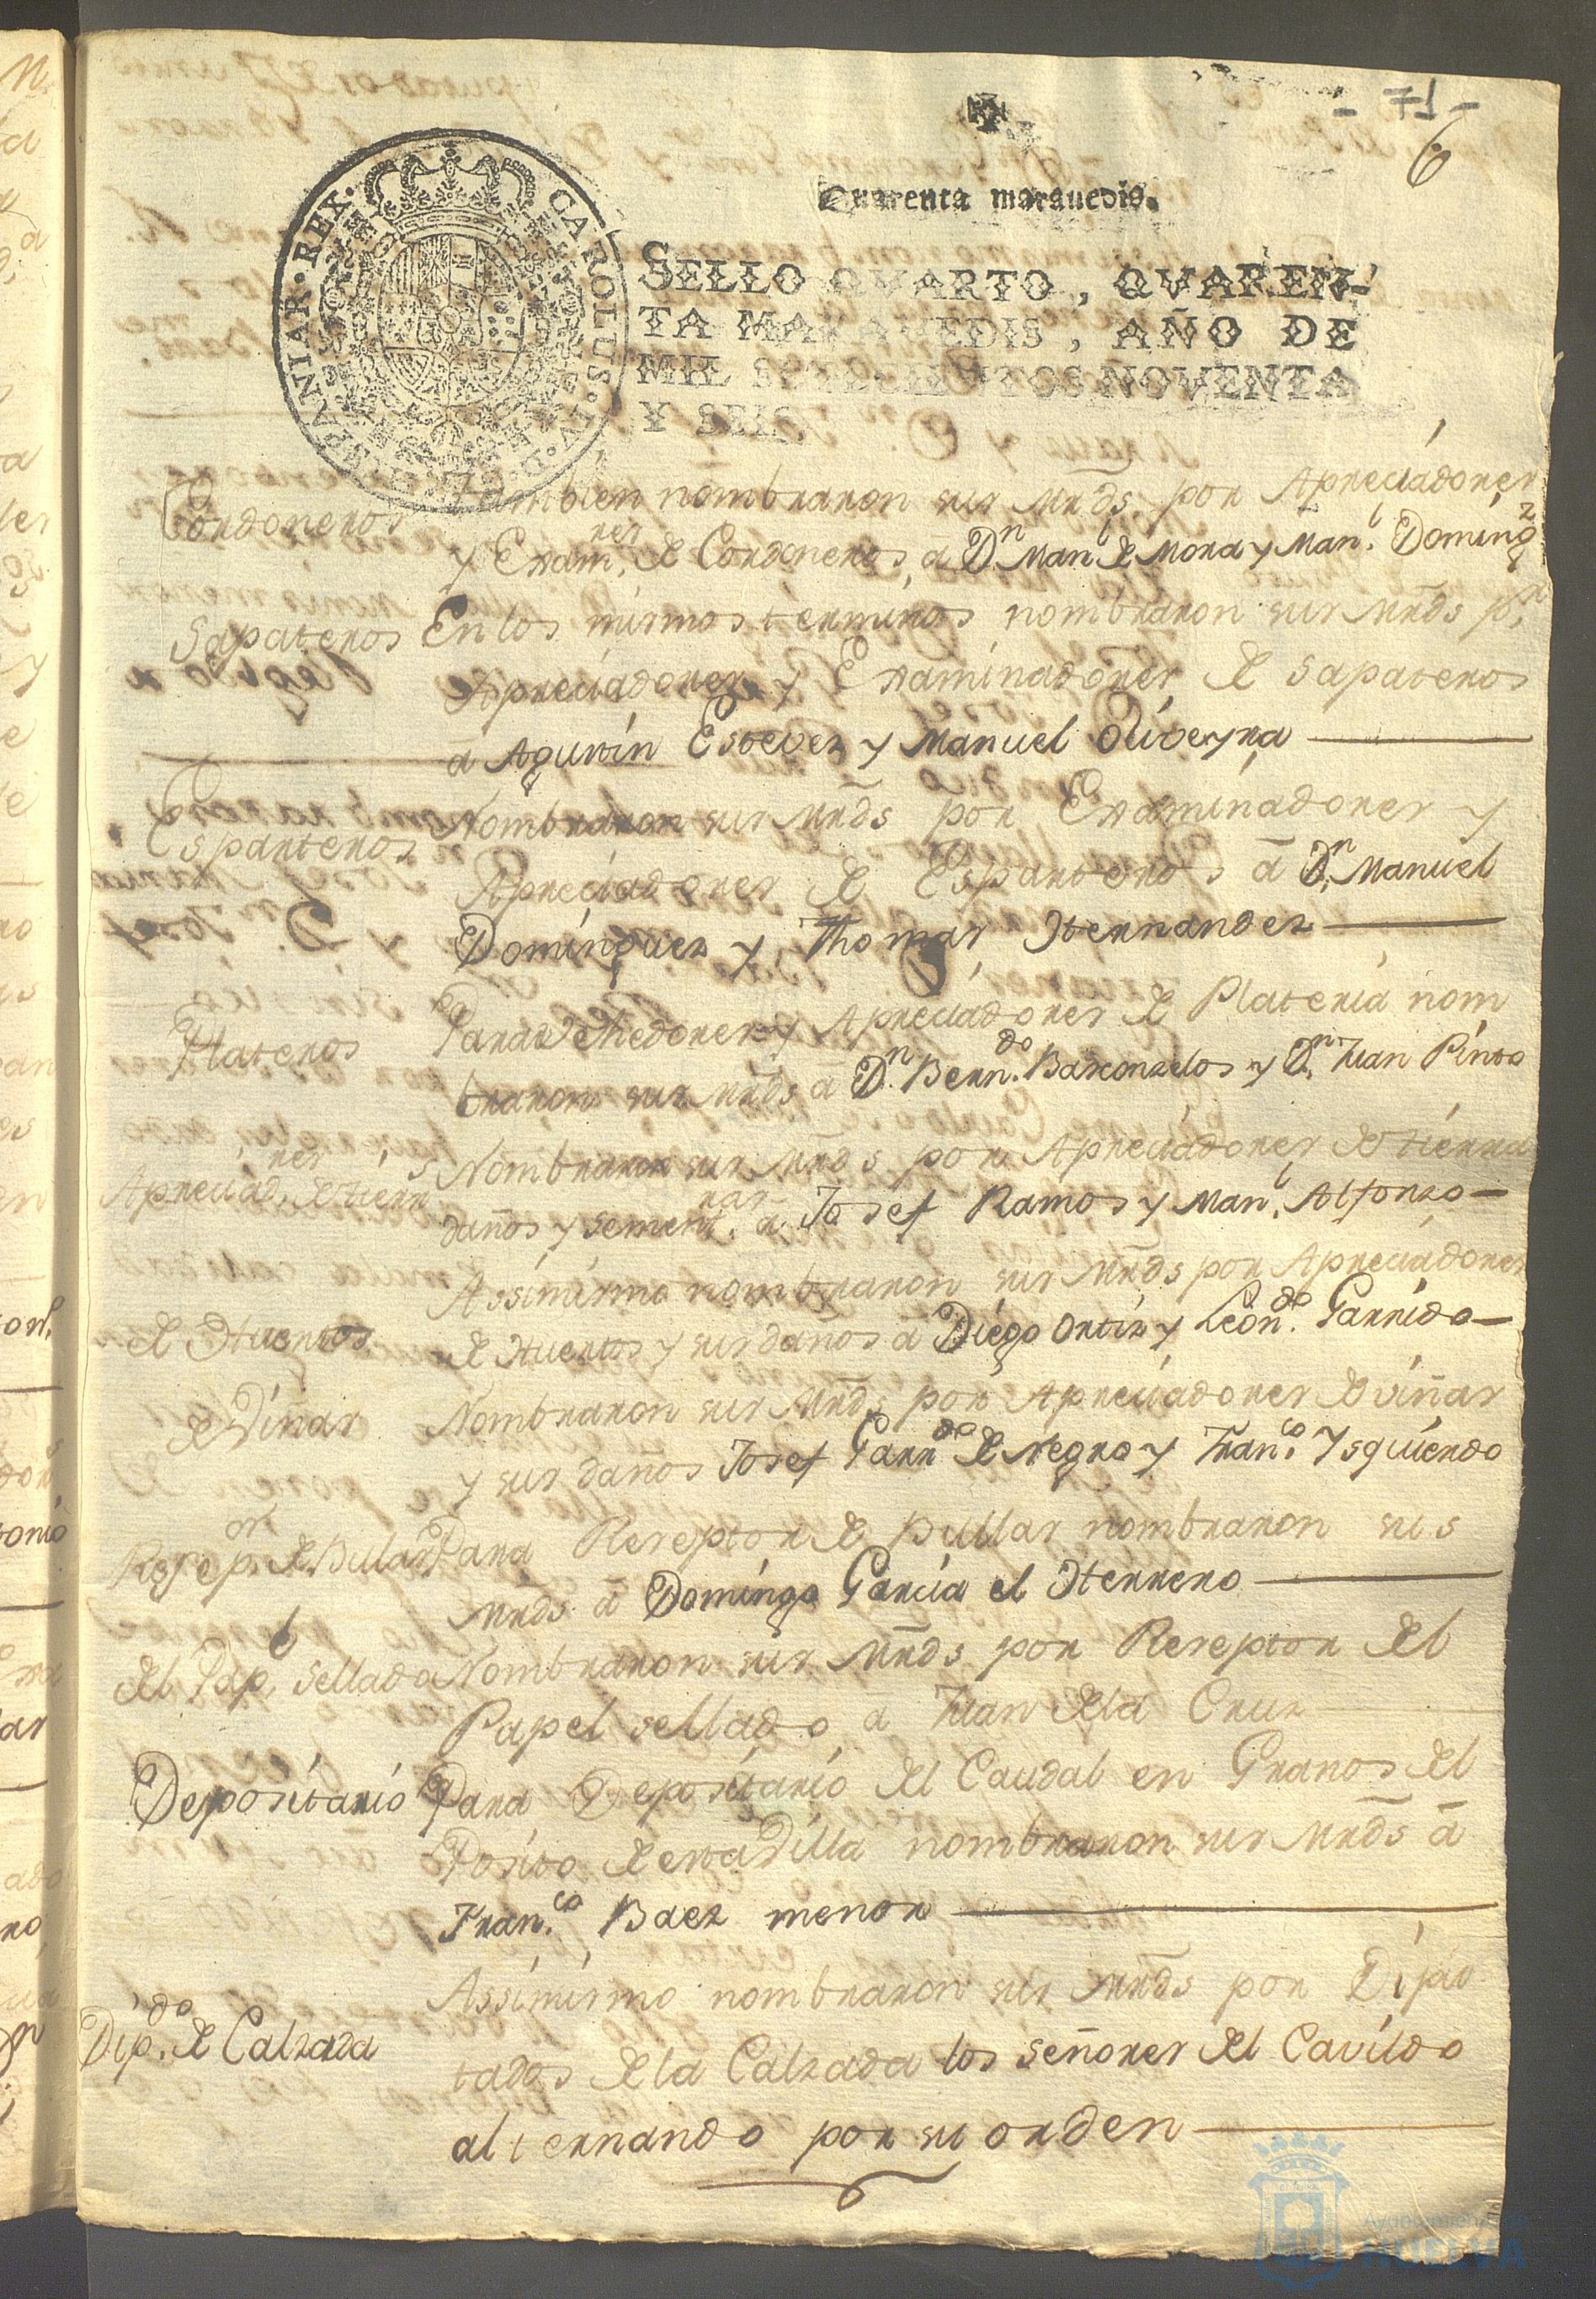 - 71 -
6
Quarenta marauedis.
CAROLUS. IV. D. G. HISPANIAR. REX.
SELLO QVARTO, QVAREN-
TA MARAVEDIS, AÑO DE
MIL SETECIENTOS NOVENTA
Y SEIS.
Cordoneros
Tambien nombraron sus mrds. por Apreciadores
y Exam.res de Cordoneros, a Dn. Man.l de Mora y Man.l Doming.z
Sapateros
En los mismos terminos nombraron sus mrds p.a
Apreciadores y Examinadores de Sapateros
a Agustin Estevez y Manuel Oliveyra
Esparteros
Nombraron sus mrds por Examinadores y
Apreciadores de Esparteros a Dn. Manuel
Dominguez y Thomas Hernandez
Plateros
Para Vehedores y Apreciadores de Plateria nom
braron sus mrds a Dn. Bern.do Barconzelos y Dn. Juan Pinto
Apreciad.res de tierr.s
Nombraron sus mrds por Apreciadores de tierra
daños y sement.ras a Josef Ramos y Man.l Alfonzo
de Huertos
Assimismo nombraron sus mrds por Apreciadores
de Huertos y sus daños a Diego Ortiz y Leon.do Garrido
de Viñas
Nombraron sus mrds por Apreciadores de viñas
y sus daños Josef Garr.do de Negro y Fran.co Ysquierdo
Resep.or de Bulas
Para Reseptor de Bullas nombraron sus
mrds a Domingo Garcia el Herrero
del Pap.l Sellado
Nombraron sus mrds por Reseptor del
Papel sellado a Juan de la Cruz
Depositario
Para Depositario del Caudal en Granos del
Posito de esta Villa nombraron sus mrds a
Fran.co Baez menor
Dip.do de Calzada
Assimismo nombraron sus mrds por Dipu
tados de la Calzada los señores del Cavildo
alternando por su orden
Ayuntamiento de
HUELVA